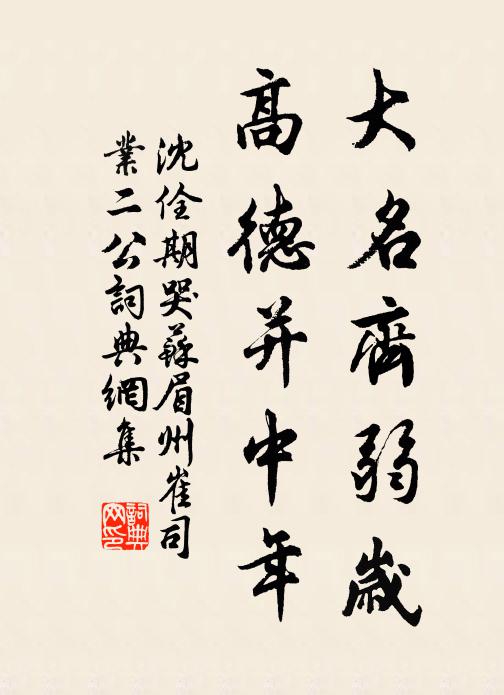 大名齊弱歲
高德并中年
沈佺期哭蘇眉州崔司
業二公詞典網集
詞典
网印